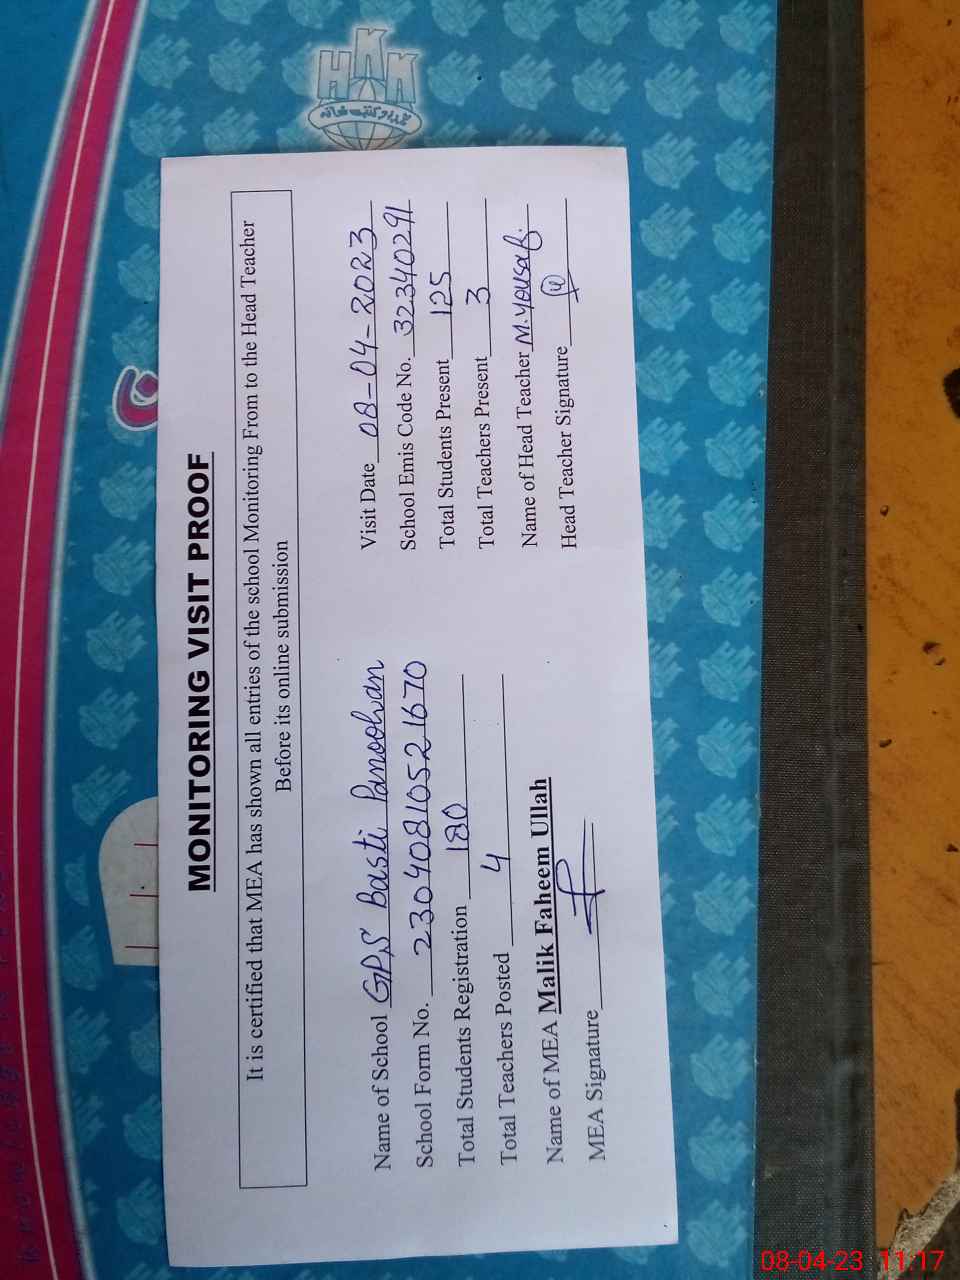 HKK
MONITORING VISIT PROOF
It is certified that MEA has shown all entries of the school Monitoring From to the Head Teacher
Before its online submission
Name of School GPS Basti Panoohan
Visit Date 08-04-2023
School Form No. 23040810521670
School Emis Code No. 32340291
Total Students Registration 180
Total Students Present 125
Total Teachers Posted 4
Total Teachers Present 3
Name of MEA Malik Faheem Ullah
Name of Head Teacher M.Yousaf.
MEA Signature
Head Teacher Signature
08-04-23 11:17